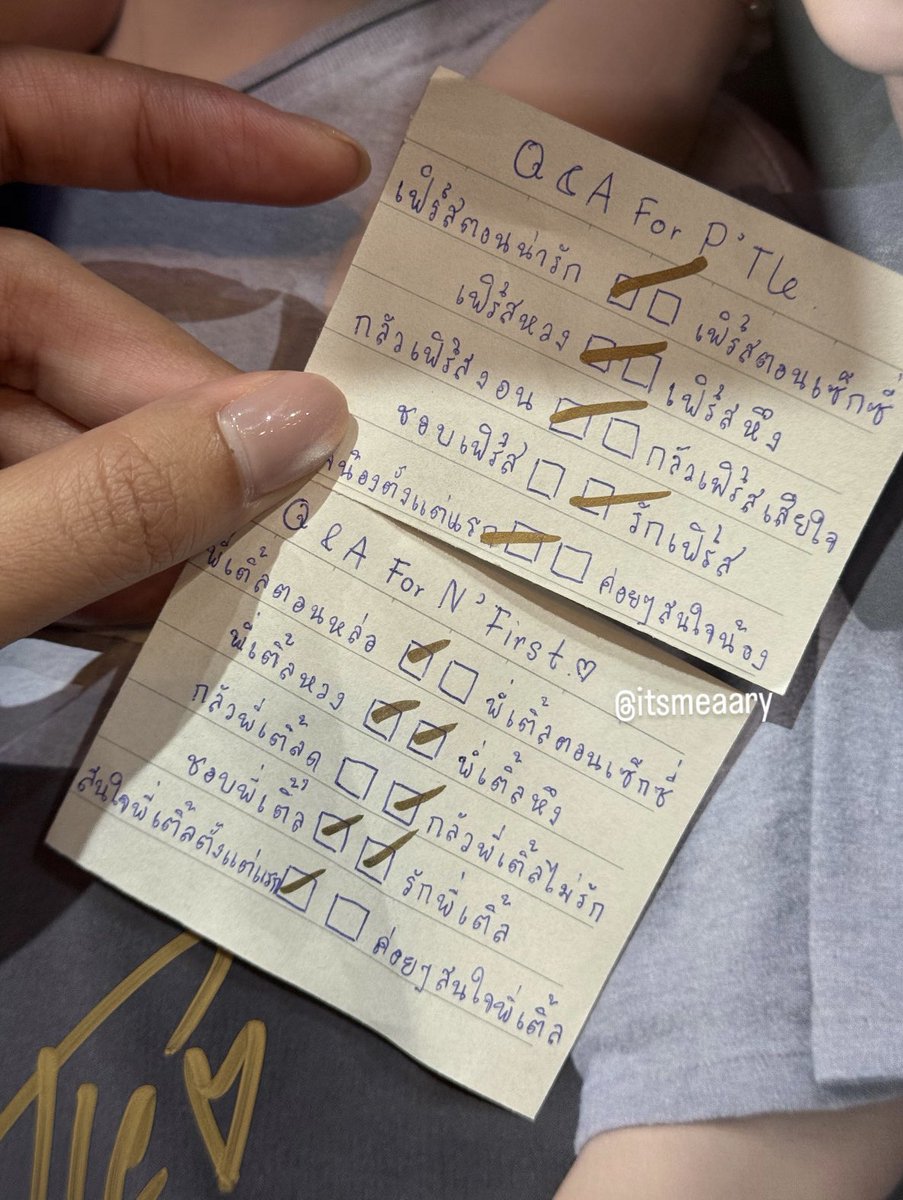 Q & A For P'Tle
เฟิร์สตอนน่ารัก เฟิร์สตอนเซ็กซี่
เฟิร์สหวง เฟิร์สหึง
กลัวเฟิร์สงอน กลัวเฟิร์สเสียใจ
ชอบเฟิร์ส รักเฟิร์ส
น้องตั้งแต่แรก ค่อยๆสนใจน้อง
Q & A For N'First ♡
พี่เติ้ลตอนหล่อ พี่เติ้ลตอนเซ็กซี่
พี่เติ้ลหวง พี่เติ้ลหึง
กลัวพี่เติ้ลดุ กลัวพี่เติ้ลไม่รัก
ชอบพี่เติ้ล รักพี่เติ้ล
สนใจพี่เติ้ลตั้งแต่แรก ค่อยๆสนใจพี่เติ้ล
@itsmeaary